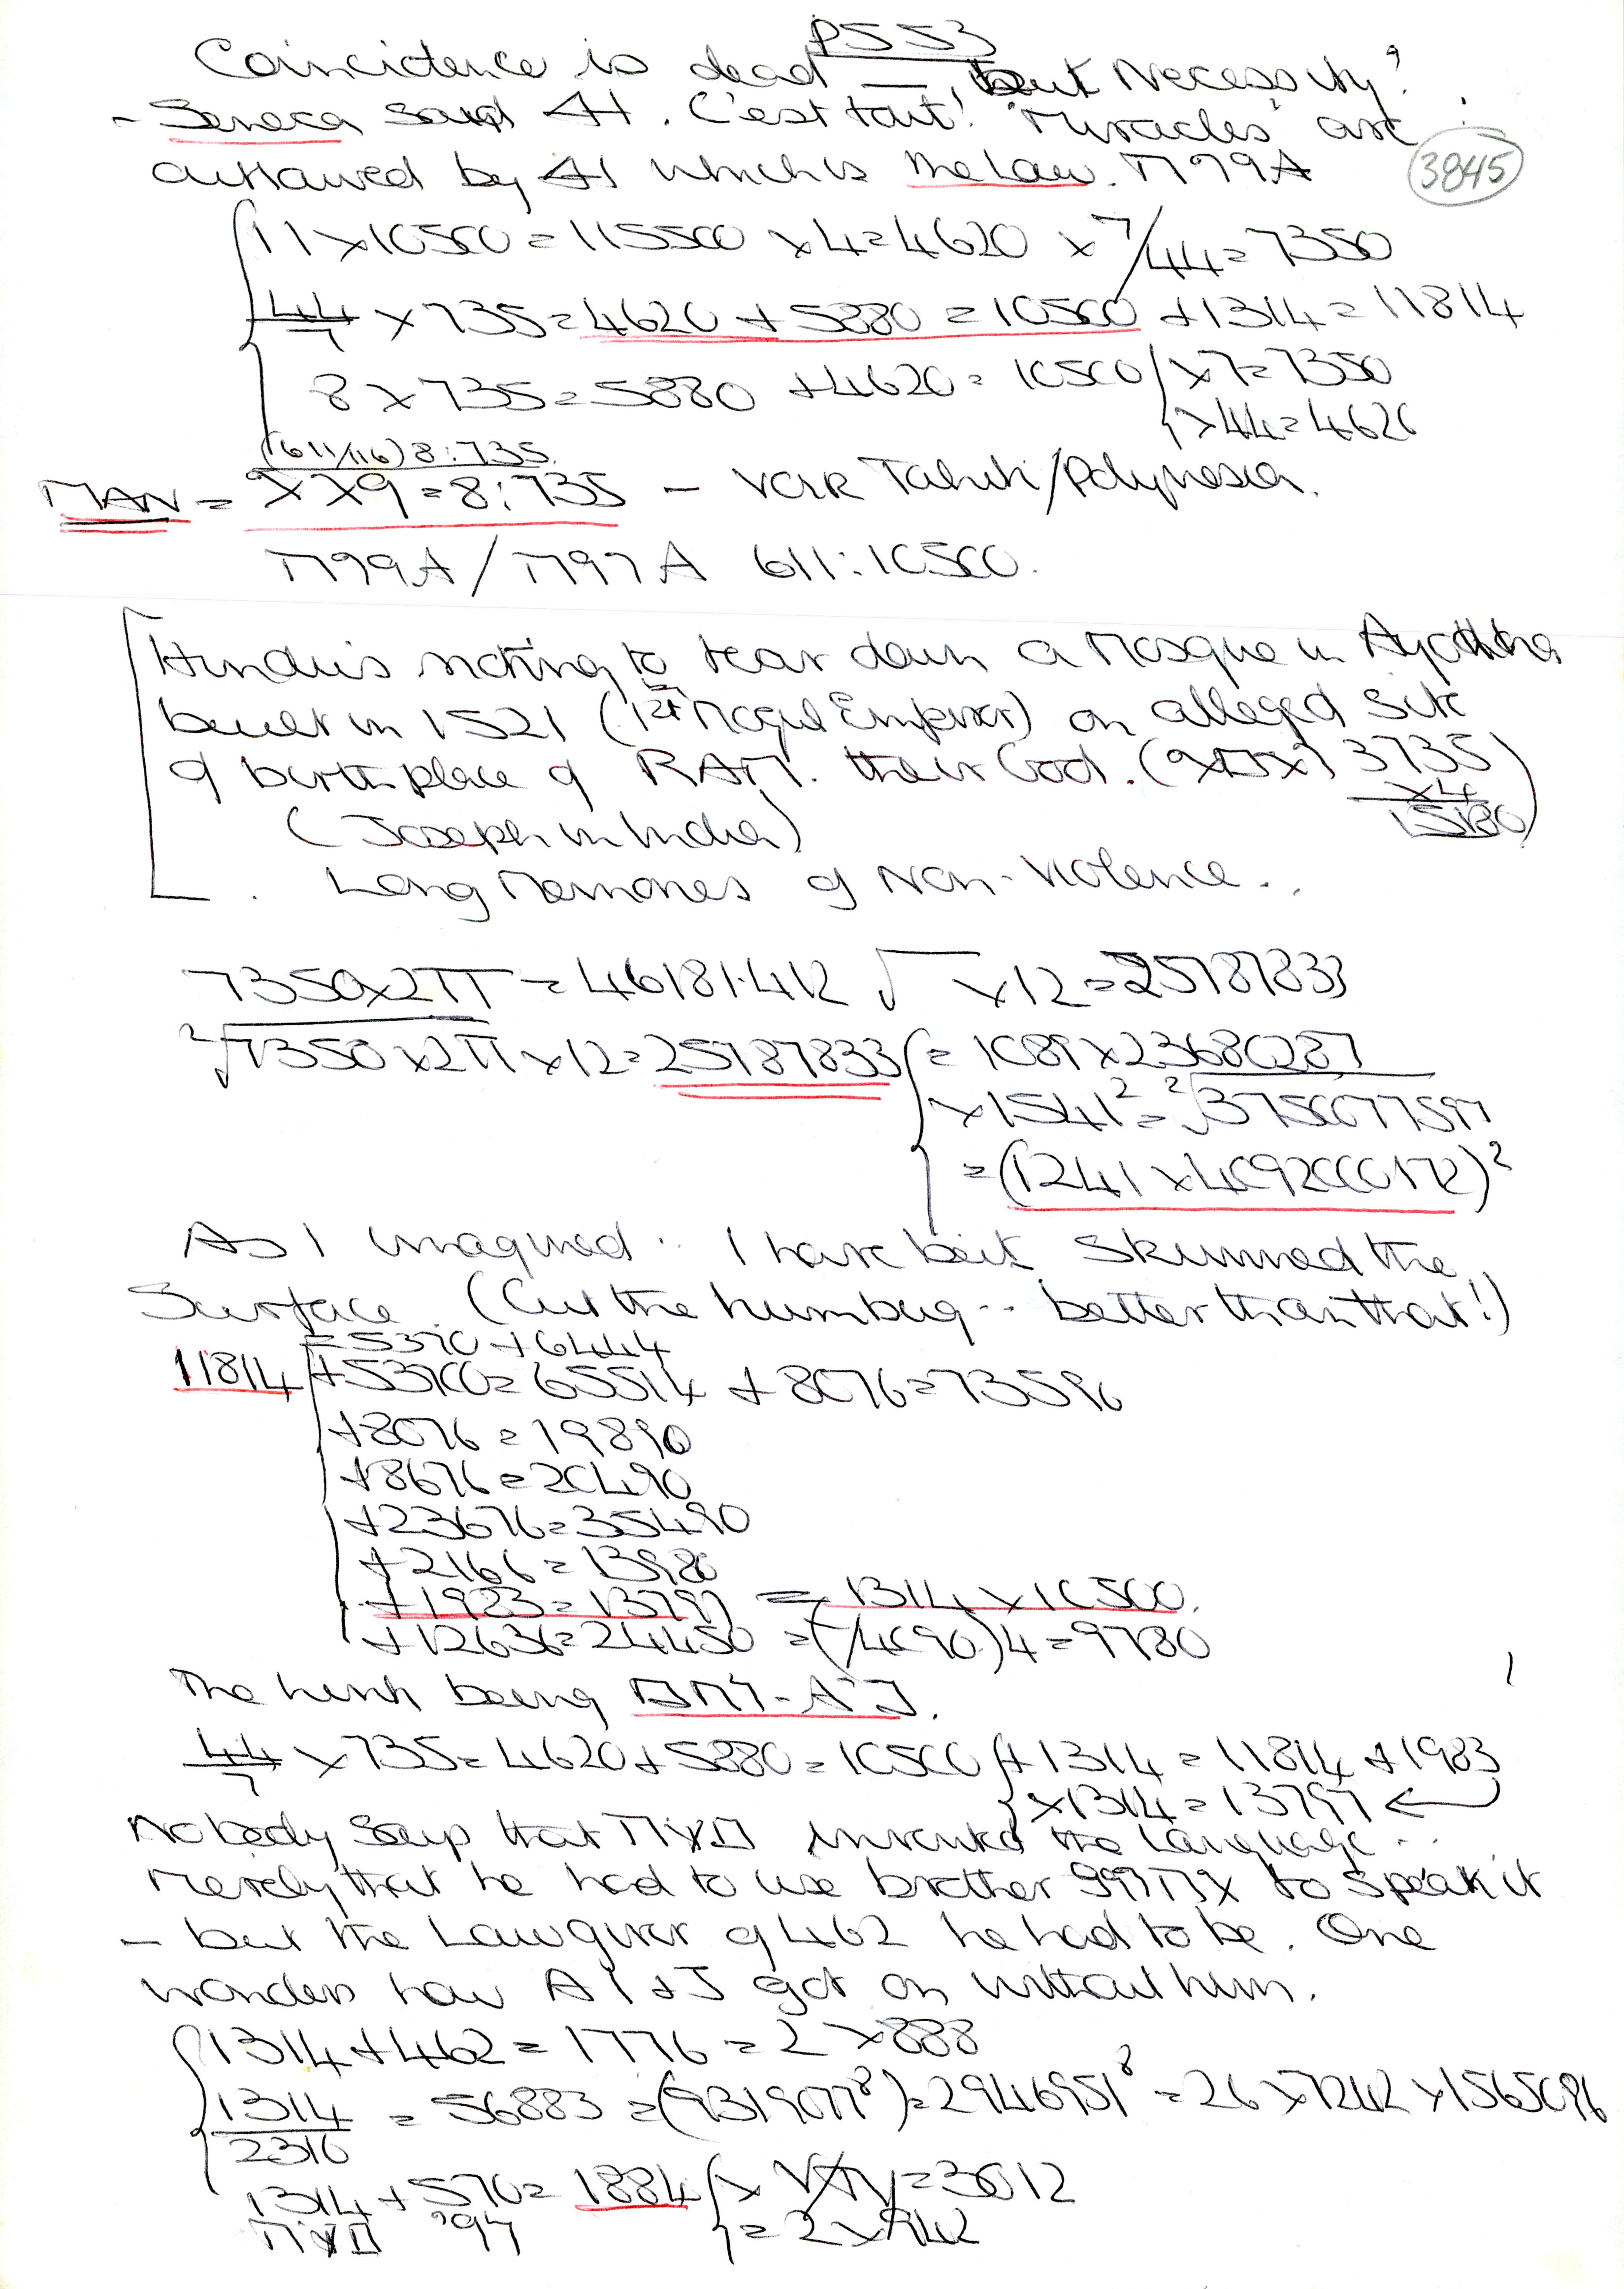 P553
Coincidence is dead — but Necessity?
- Seneca said A1. C'est tout! "Miracles" are
outlawed by A1 which is the Law.
3845
11 x 10500 = 115500 x 4 = 4620 x 7/44 = 7350
44/7 x 735 = 4620 + 5880 = 10500 + 1314 = 11814
8 x 735 = 5880 + 4620 = 10500 x 7 = 7350
x 44 = 4620
(611/116) 8:735
MAN = = 8:735 - Tahiti/Polynesia.
611:10500.
Hindus rioting to tear down a Mosque in Ayodhya
built in 1521 (1st Mogul Emperor) on alleged site
of birthplace of RAM. their God. ( 3735
x4
(Joseph in India)
Long Memories of Non-Violence..
7350 x 2π = 46181.412 √ x 12 = 25787833
²√7350 x 2π x 12 = 25787833 = 1089 x 23680287
x 1541² = ²√3750777597
= (1241 x 4092000172)²
As I imagined.. I have but skimmed the
Surface. (Cut the humbug -- better than that!)
= 5370 + 6444
11814 + 53700 = 65514 + 8076 = 73590
+ 8076 = 19890
+ 8676 = 20490
+ 23676 = 35490
+ 2166 = 13980
+ 1983 = 13797 = 1314 x 10500.
+ 12636 = 24450 = (/4090)4 = 9780
The hunk being
44/7 x 735 = 4620 + 5880 = 10500 + 1314 = 11814 + 1983
x 1314 = 13797
Nobody says that invented the Language...
Merely that he had to use brother to speak it
- but the Lawgiver of 462 he had to be. One
wonders how A1 + J got on without him.
1314 + 462 = 1776 = 2 x 888
1314/2310 = 56883 = (9319077⁸) = 2946951⁸ = 26 x 7242 x 1565096
1314 + 570 = 1884 x = 3612
= 2 x 942